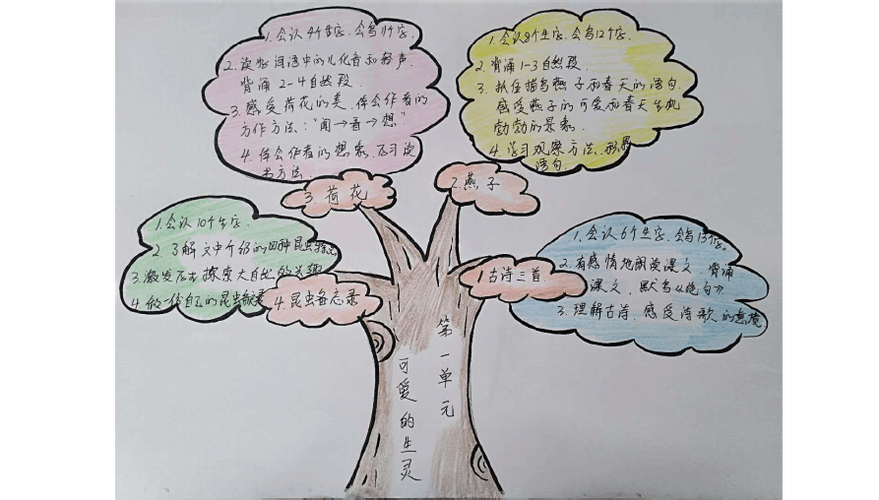 1.会认4个生字,会写11个字.
2.读好词语中的儿化音和轻声.
背诵2-4自然段.
3.感受荷花的美,体会作者的
方作方法:"闻→看→想"
4.体会作者的想象,
书方法.
3.荷花
1.会认8个生字,会写12个字.
2.背诵1-3自然段.
3.抓住描写燕子和春天的语句,
感受燕子的可爱和春天生机
勃勃的景象.
4.学习观察方法,积累
语句.
2.燕子
1.会认10个生字.
2.了解文中介绍的四种昆虫特点
3.激发探究大自然的兴趣
4.做一份自己的昆虫备忘录
4.昆虫备忘录
1.会认6个生字,会写13个字.
2.有感情地朗读课文,背诵
课文,默写《绝句》.
3.理解古诗,感受诗歌的意境.
1.古诗三首
第一单元
可爱的生灵